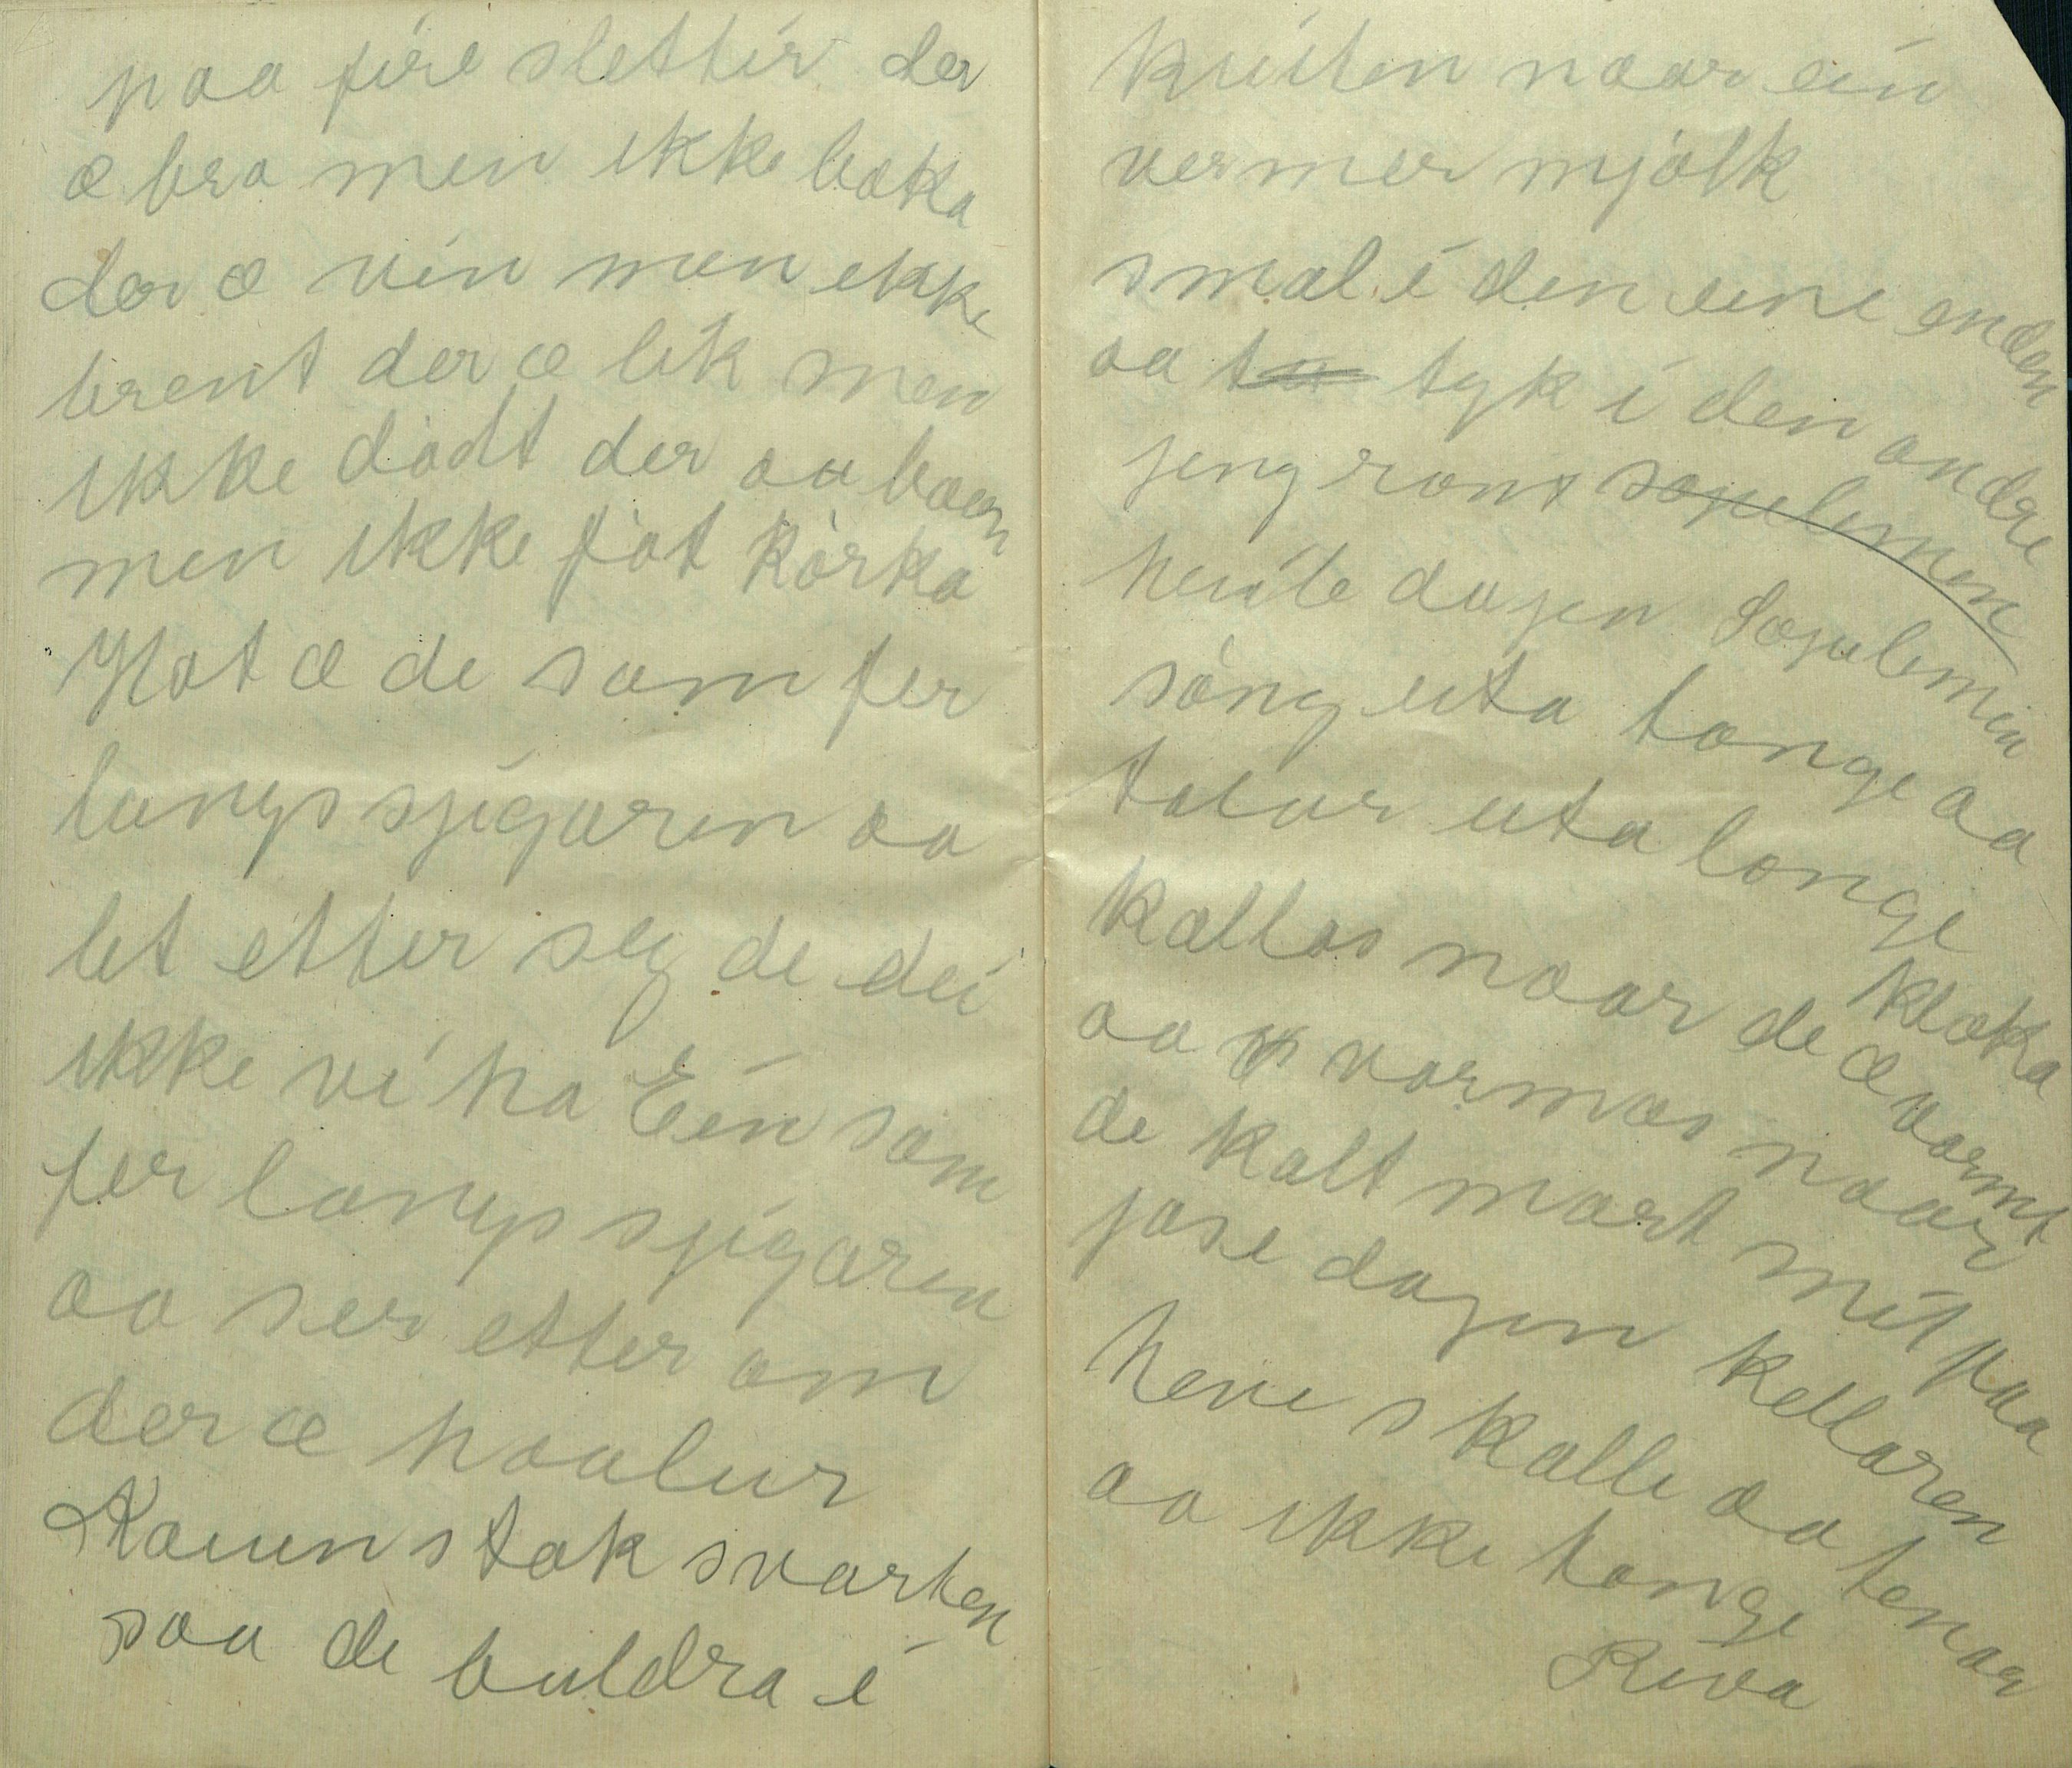 paa fire slettir der
æ bra men ikke baka
der æ vin men ikke
brent der æ lik men
ikke dødt der aa baaen
men ikke føt kørka
Hot æ de som fer
langs sjigaren aa
let etter seg de dei
ikke vi ha Ein som
fer langs sjigaren
aa ser etter om
der æ haalur
Rauen stak svarten
saa de buldra i
kviiten naar ein
vermer mjølk
smal i den eine enden
aa tyk i den andre
jeng ront sojulemen
heile dajen Sojulemin
søng uta tonge aa
talar uta longe
klaka
kallas naar de æ varmt
aa varmas naar
de kalt mart mit paa
jase dagen kellaren
heve skalle aa tenar
aa ikke tonge
Riva